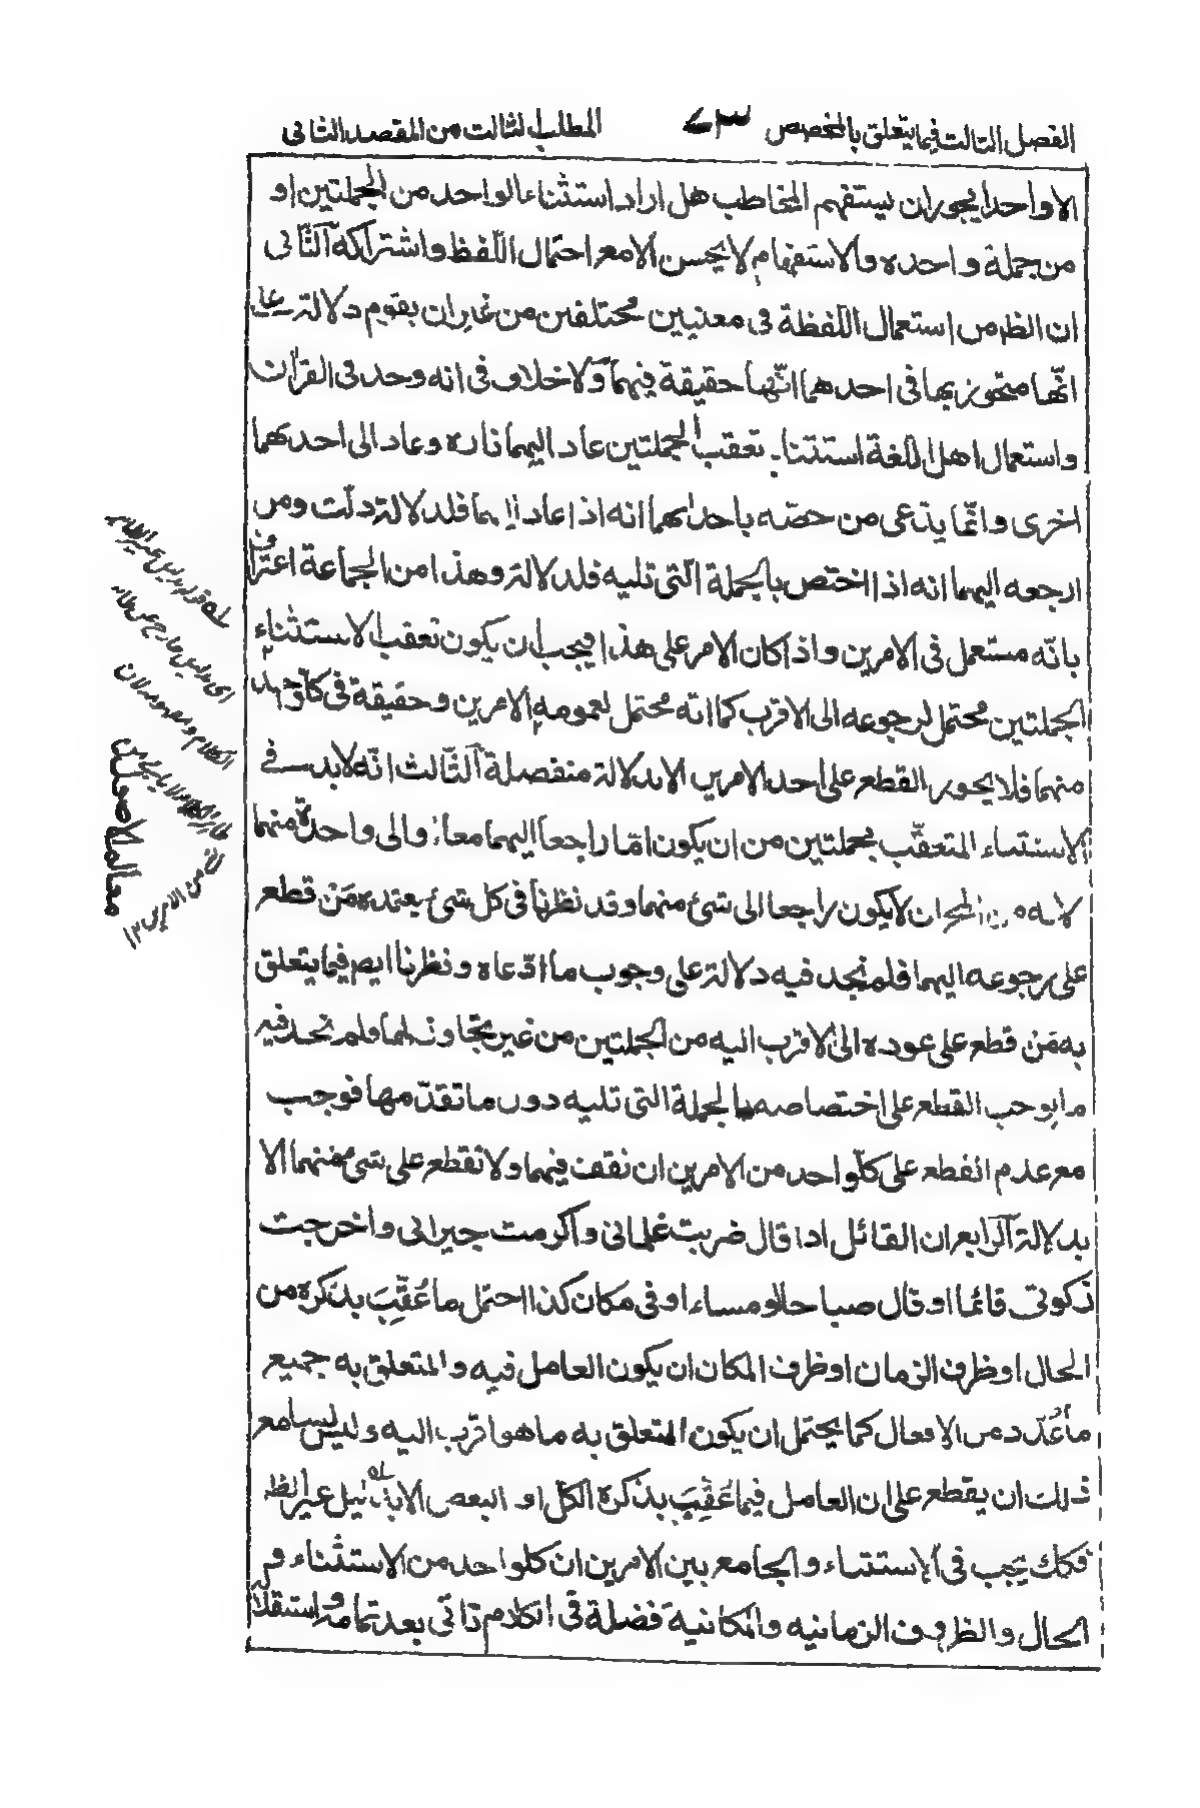 الفصل الثالث فيما يتعلق بالمخصص ٧٣ المطلب الثالث من المقصد الثانى
الا واحدا يجوز ان يستفهم المخاطب هل اراد استثناء الواحد من الجملتين او
من جملة واحده والاستفهام لا يحسن الا مع احتمال اللفظ واشتراكه الثانى
ان الظ من استعمال اللفظة فى معنيين مختلفين من غير ان يقوم دلالة على
انها متجوز بها فى احدهما انها حقيقة فيهما ولا خلاف فى انه وجد فى القران
واستعمال اهل اللغة استثناء تعقب الجملتين عاد اليهما تارة وعاد الى احديهما
اخرى وانما يدعى من خصه باحديهما انه اذا عاد اليهما فلدلالة دلت ومن
ارجعه اليهما انه اذا اختص بالجملة التى تليه فلدلالة وهذا من الجماعة اعتراف
بانه مستعمل فى الامرين واذا كان الامر على هذا فيجب ان يكون تعقب الاستثناء
الجملتين محتمل لرجوعه الى الاقرب كما انه محتمل لعمومه الامرين وحقيقة فى كل واحد
منهما فلا يجوز القطع على احد الامرين الا بدلالة منفصلة الثالث انه لا بد فى
الاستثناء المتعقب بجملتين من ان يكون اما راجعا اليهما معا او الى واحدة منهما
لانه من المحال ان لا يكون راجعا الى شئ منهما وقد نظرنا فى كل شئ يعتمده من قطع
على رجوعه اليهما فلم نجد فيه دلالة على وجوب ما ادعاه ونظرنا ايض فيما يتعلق
به من قطع على عوده الى الاقرب اليه من الجملتين من غير تجاوز لها فلم نجد فيه
ما يوجب القطع على اختصاصه بالجملة التى تليه دون ما تقدمها فوجب
مع عدم القطع على كل واحد من الامرين ان نقف فيهما ولا نقطع على شئ منهما الا
بدلالة الرابع ان القائل اذا قال ضربت غلمانى واكرمت جيرانى واخرجت
زكوتى قائما او قال صباحا او مساء او فى مكان كذا احتمل ما عُقِّبَ بذكره من
الحال او ظرف الزمان او ظرف المكان ان يكون العامل فيه والمتعلق به جميع
ما عُدّد من الافعال كما يحتمل ان يكون المتعلق به ما هو اقرب اليه وليس لسامع
ذلك ان يقطع على ان العامل فيما عُقِّبَ بذكره الكل او البعض الا بدليل غير الظ
فكك يجب فى الاستثناء والجامع بين الامرين ان كل واحد من الاستثناء و
الحال والظروف الزمانيه والمكانية فضلة فى الكلام تاتى بعد تمامه واستقلاله
له قوله بدليل غير الظاهر
اى بدليل خارج عن ظاهر
الكلام ومفهومه لان
من الامرين ١٢
معالم الاصول